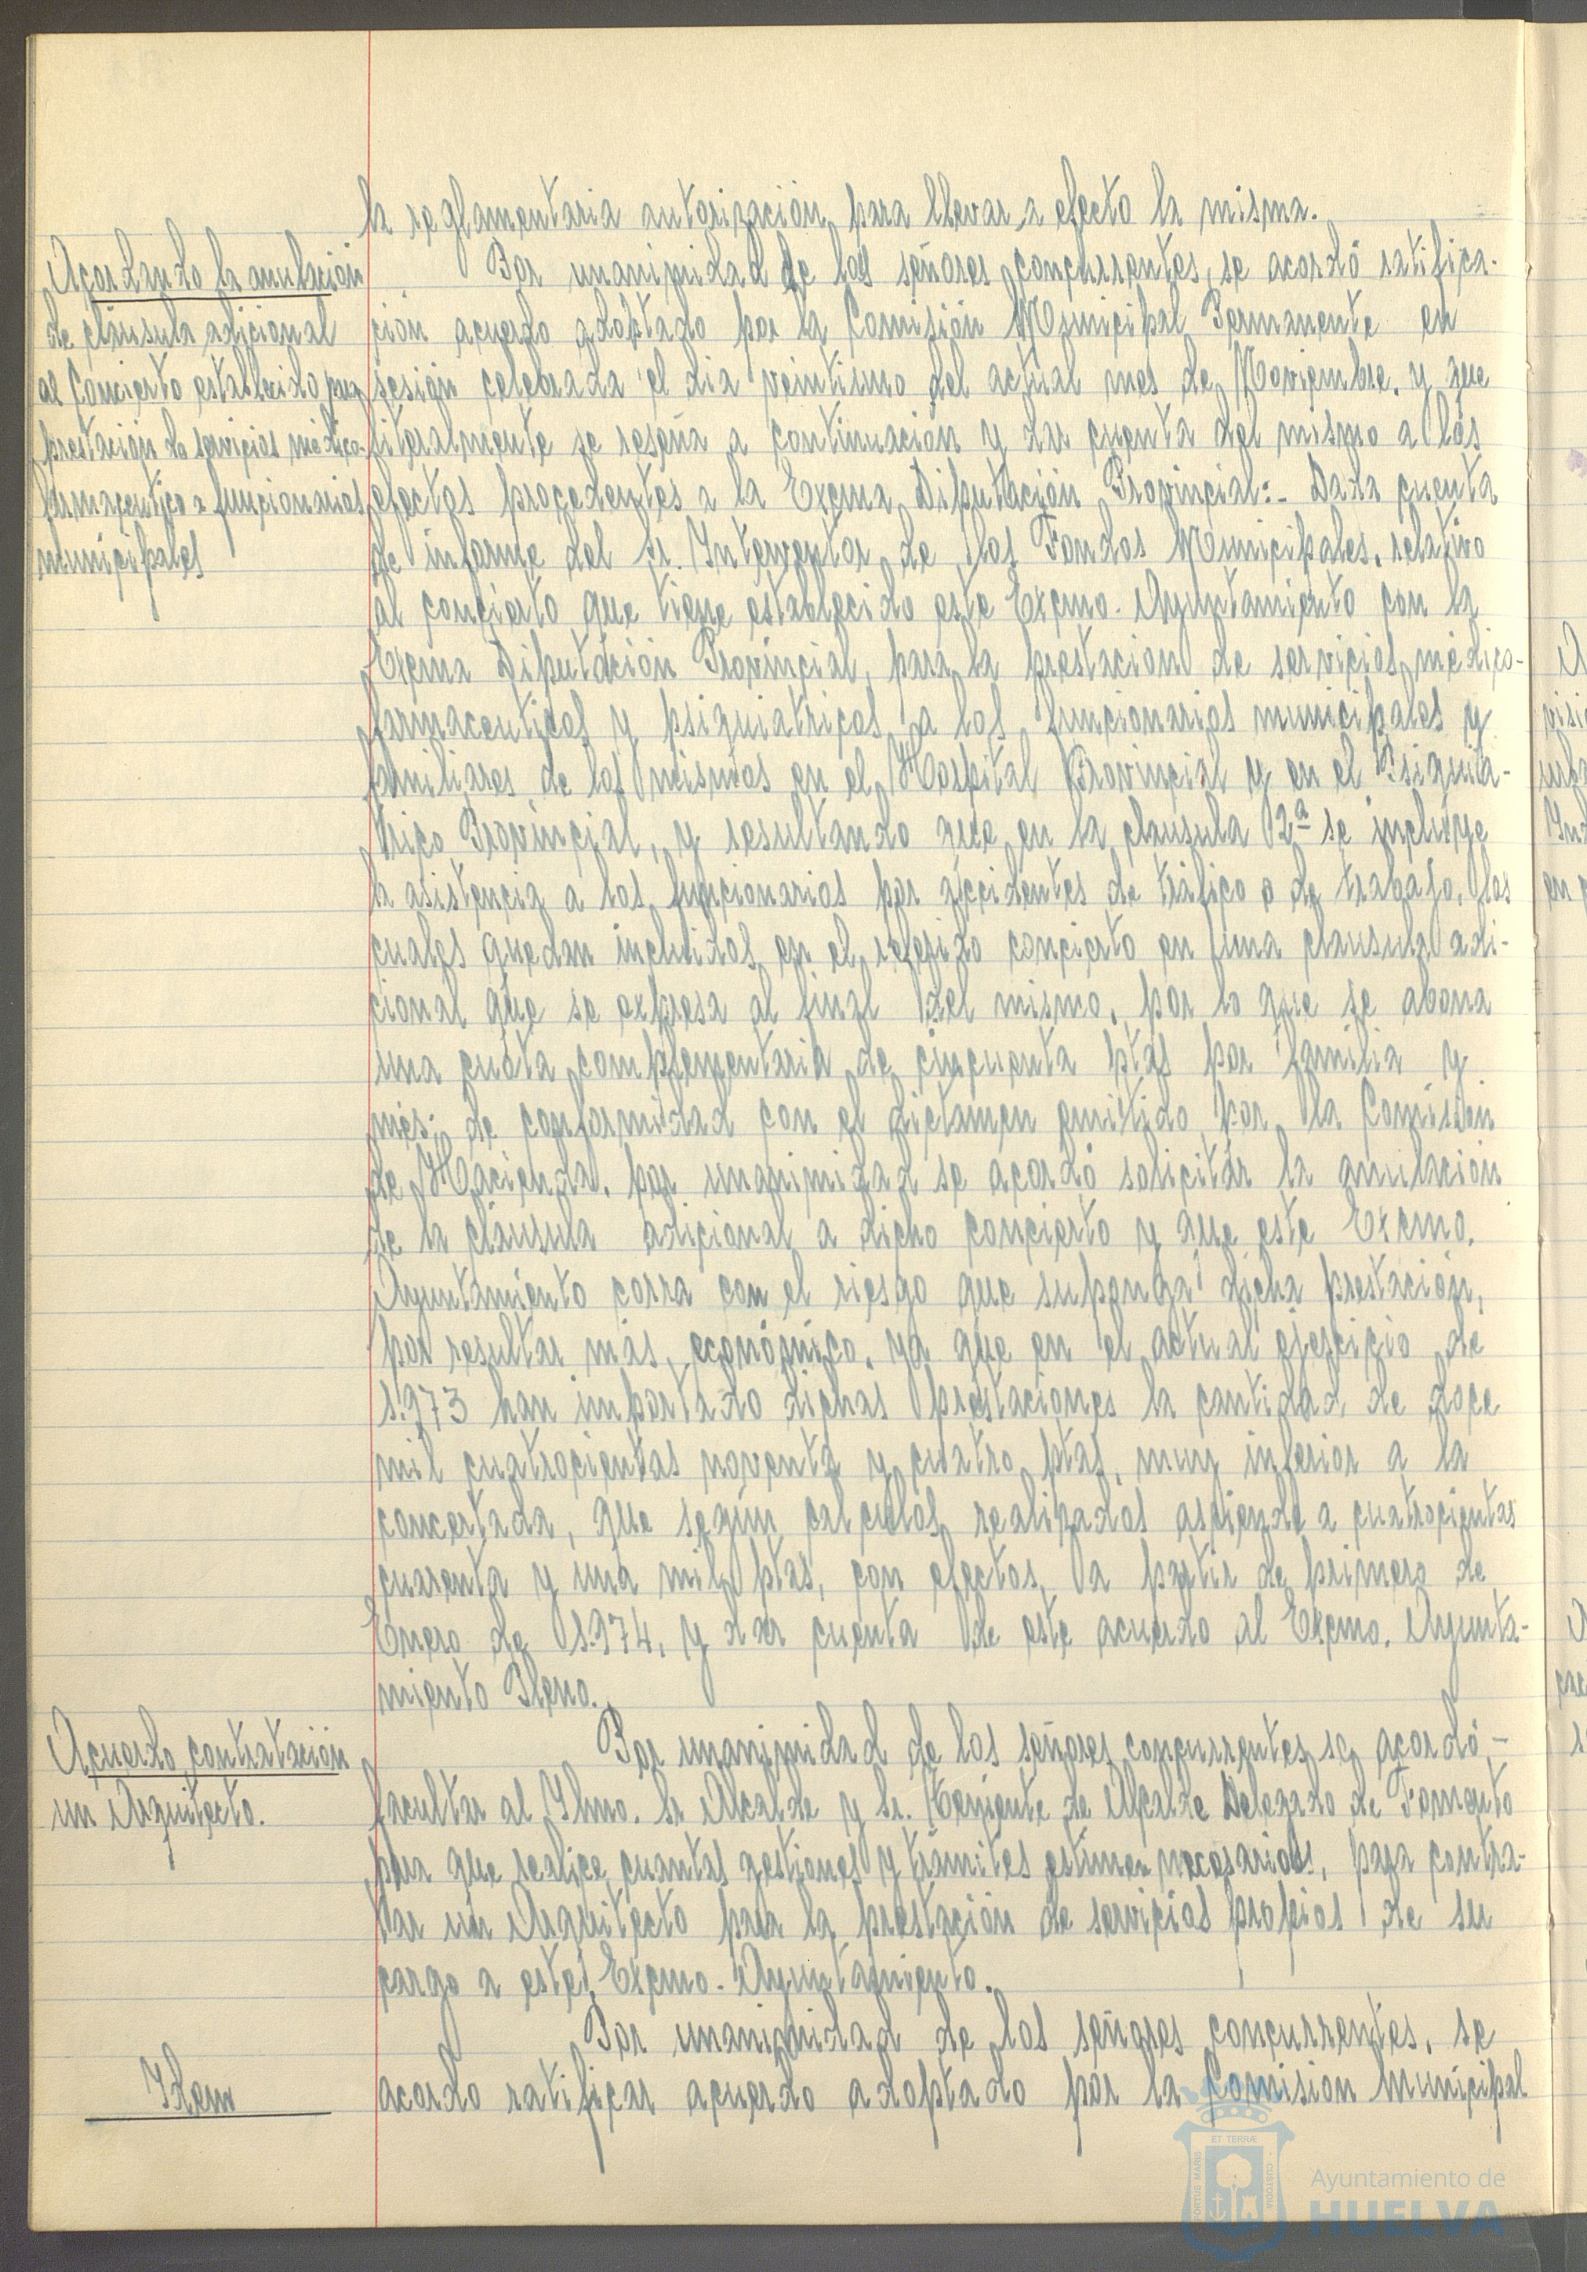 la reglamentaria autorización para llevar a efecto la misma.
Acordando la anulación
de cláusula adicional
al Concierto establecido para
prestación de servicios médico-
farmaceutico a funcionarios
municipales
Por unanimidad de los señores concurrentes, se acordó ratifica-
ción acuerdo adoptado por la Comisión Municipal Permanente en
sesión celebrada el dia veintiuno del actual mes de Noviembre, y que
literalmente se reseña a continuación y dar cuenta del mismo a los
efectos procedentes a la Excma Diputación Provincial:- Dada cuenta
de informe del Sr. Interventor de los Fondos Municipales, relativo
al concierto que tiene establecido este Excmo. Ayuntamiento con la
Excma Diputación Provincial, para la prestacion de servicios médico-
farmaceuticos y psiquiatricos a los funcionarios municipales y
familiares de los mismos en el Hospital Provincial y en el Psiquia-
trico Provincial, y resultando que en la clausula 2ª se incluye
la asistencia a los funcionarios por accidentes de tráfico o de trabajo, los
cuales quedan incluidos en el referido concierto en una clausula adi-
cional que se expresa al final del mismo, por lo que se abona
una cuota complementaria de cincuenta ptas por familia y
mes; de conformidad con el dictamen emitido por la Comision
de Hacienda, por unanimidad se acordó solicitar la anulacion
de la cláusula adicional a dicho concierto y que este Excmo.
Ayuntamiento corra con el riesgo que suponga dicha prestación,
por resultar más económico, ya que en el actual ejercicio de
1.973 han importado dichas prestaciones la cantidad de doce
mil cuatrocientas noventa y cuatro ptas, muy inferior a la
concertada, que según calculos realizados asciende a cuatrocientas
cuarenta y una mil ptas, con efectos a partir de primero de
Enero de 1.974, y dar cuenta de este acuerdo al Excmo. Ayunta-
miento Pleno.
Acuerdo contratación
un Arquitecto.
Por unanimidad de los señores concurrentes se acordó -
facultar al Ilmo. Sr Alcalde y Sr. Teniente de Alcalde Delegado de Fomento
para que realice cuantas gestiones y trámites estimen necesarios, para contra-
tar un Arquitecto para la prestación de servicios propios de su
cargo a este Excmo. Ayuntamiento.
Idem
Por unanimidad de los señores concurrentes, se
acordo ratificar acuerdo adoptado por la Comision Municipal
ET TERRÆ
PORTUS MARIS
CUSTODIA
Ayuntamiento de
HUELVA